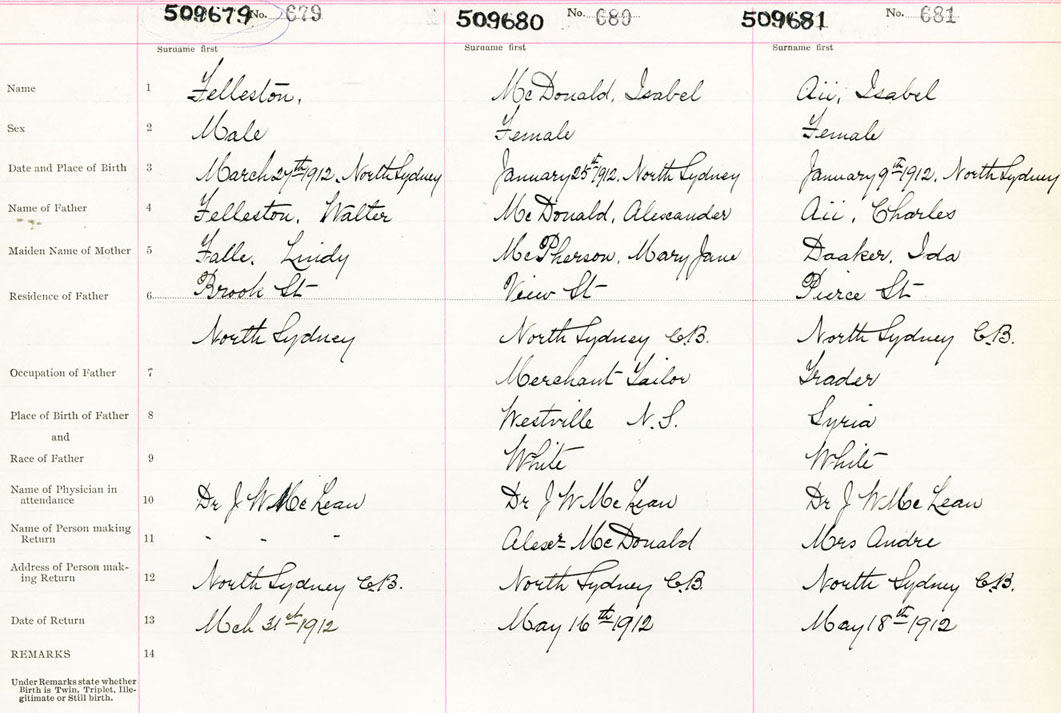 509679 No. 679 509680 No. 680 509681 No. 681
Surname first Surname first Surname first
Name 1 Felleston, McDonald, Isabel Aii, Isabel
Sex 2 Male Female Female
Date and Place of Birth 3 March 27th 1912, North Sydney January 25th 1912, North Sydney January 9th 1912, North Sydney
Name of Father 4 Felleston, Walter McDonald, Alexander Aii, Charles
Maiden Name of Mother 5 Falle, Lindy McPherson, Mary Jane Daaker, Ida
Residence of Father 6 Brook St View St Pierce St
North Sydney North Sydney C.B. North Sydney C.B.
Occupation of Father 7 Merchant Tailor Trader
Place of Birth of Father 8 Westville N.S. Syria
and
Race of Father 9 White White
Name of Physician in
attendance 10 Dr J W McLean Dr J W McLean Dr J W McLean
Name of Person making
Return 11 " " " Alexr McDonald Mrs Andre
Address of Person mak-
ing Return 12 North Sydney C.B. North Sydney C.B. North Sydney C.B.
Date of Return 13 Mch 31st 1912 May 16th 1912 May 18th 1912
REMARKS 14
Under Remarks state whether
Birth is Twin, Triplet, Ille-
gitimate or Still birth.